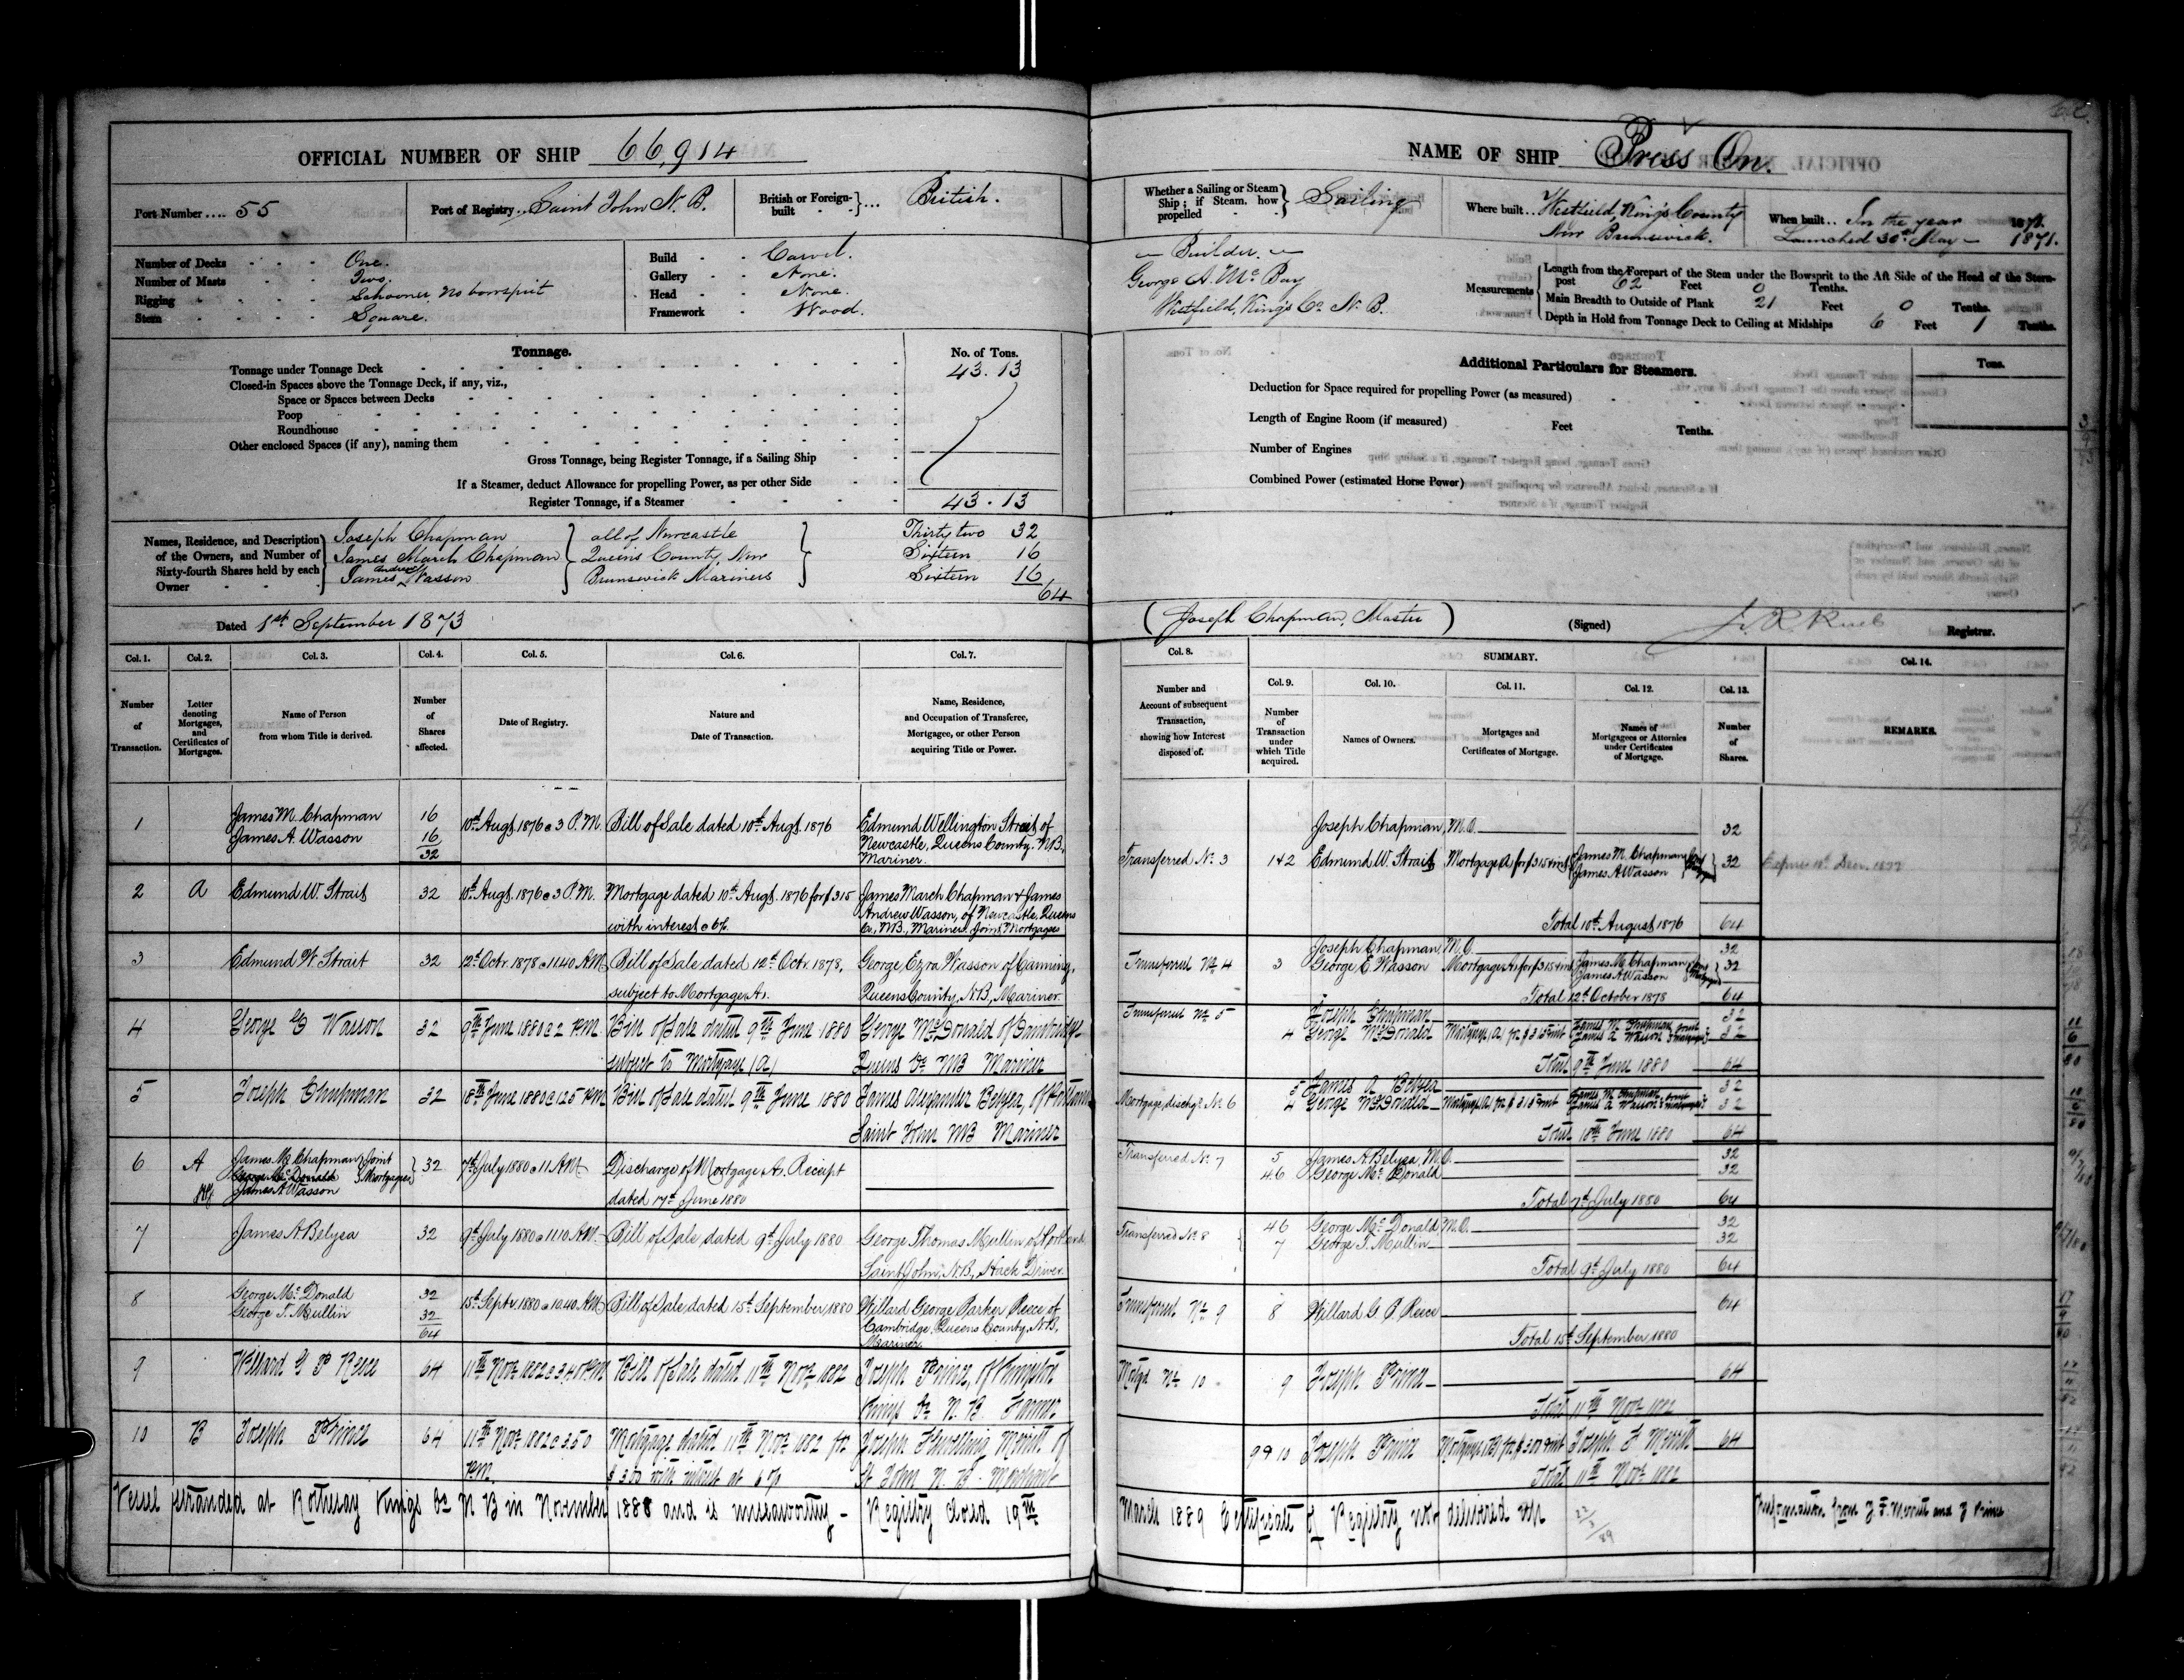 OFFICIAL NUMBER OF SHIP 66,914
Port Number .... 55
Port of Registry .. Saint John N. B.
British or Foreign-built ... British.
Number of Decks One.
Number of Masts Two.
Rigging Schooner No bowsprit
Stern Square.
Build Carvel.
Gallery None.
Head None.
Framework Wood.
Tonnage. No. of Tons.
Tonnage under Tonnage Deck 43.13
Closed-in Spaces above the Tonnage Deck, if any, viz.,
Space or Spaces between Decks
Poop
Roundhouse
Other enclosed Spaces (if any), naming them
Gross Tonnage, being Register Tonnage, if a Sailing Ship
If a Steamer, deduct Allowance for propelling Power, as per other Side
Register Tonnage, if a Steamer 43.13
Names, Residence, and Description of the Owners, and Number of Sixty-fourth Shares held by each Owner
Joseph Chapman all of Newcastle Thirty two 32
James March Chapman Queens County, New Sixteen 16
James Andrew Wasson Brunswick Mariners Sixteen 16
64
Dated 1st September 1873
Col. 1. Col. 2. Col. 3. Col. 4. Col. 5. Col. 6. Col. 7.
Number of Transaction.
Letter denoting Mortgages, and Certificates of Mortgages.
Name of Person from whom Title is derived.
Number of Shares affected.
Date of Registry.
Nature and Date of Transaction.
Name, Residence, and Occupation of Transferee, Mortgagee, or other Person acquiring Title or Power.
1 James M. Chapman 16 10th Augt 1876 @ 3 P.M. Bill of Sale dated 10th Augt. 1876 Edmund Wellington Strait of
James A. Wasson 16 Newcastle, Queens County. N.B.
32 Mariner.
2 A Edmund W. Strait 32 10th Augt. 1876 @ 3 P.M. Mortgage dated 10th Augt. 1876 for $315 James March Chapman & James
with interest @ 6%. Andrew Wasson, of Newcastle, Queens
Co., N.B., Mariners Joint Mortgagees
3 Edmund W. Strait 32 12th Octr. 1878 @ 11.40 A.M. Bill of Sale dated 12th Octr. 1878, George Ezra Wasson of Canning,
subject to Mortgage A. Queens County, N.B., Mariner.
4 George E Wasson 32 9th June 1880 @ 2 P.M Bill of Sale dated 9th June 1880 George McDonald of Cambridge
subject to Mortgage (A) Queens Co NB Mariner
5 Joseph Chapman 32 18th June 1880 @ 1 25 P.M Bill of Sale dated 9th June 1880 James Alexander Belyea, of Portland
Saint John NB Mariner
6 A James M. Chapman Joint 32 7th July 1880 @ 11 A.M. Discharge of Mortgage A. Receipt
George McDonald Mortgagees
James A Wasson dated 17th June 1880
7 James A. Belyea 32 9th July 1880 @ 11.10 A.M. Bill of Sale, dated 9th July 1880 George Thomas Mullin of Portland
Saint John, N.B., Hack Driver.
8 George McDonald 32 15th Septr. 1880 @ 10.40 A.M. Bill of Sale, dated 15th September 1880 Willard George Parker Reece of
George T. Mullin 32 Cambridge, Queens County, N.B.,
64 Mariner.
9 Willard G P Reece 64 11th Novr 1882 @ 3.40 P.M Bill of Sale dated 11th Novr 1882 Joseph Prince, of Kingston
Kings Co N. B. Farmer
10 B Joseph Prince 64 11th Novr 1882 @ 3.50 Mortgage dated 11th Novr 1882 for Joseph Flewelling Merritt of
P.M. $300 with interest at 6 % St John N. B. Merchant
Vessel stranded at Rothesay Kings Co N B in November 1888 and is unseaworthy - Registry closed 19th
NAME OF SHIP Press On.
Whether a Sailing or Steam Ship; if Steam, how propelled Sailing
Where built .. Westfield, King's County
New Brunswick.
When built .. In the year 1871.
Launched 30th May 1871.
Builder.
George A. McBay
Westfield, King's Co. N. B.
Measurements
Length from the Forepart of the Stem under the Bowsprit to the Aft Side of the Head of the Stern-post 62 Feet 0 Tenths.
Main Breadth to Outside of Plank 21 Feet 0 Tenths.
Depth in Hold from Tonnage Deck to Ceiling at Midships 6 Feet 1 Tenths.
Additional Particulars for Steamers. Tons.
Deduction for Space required for propelling Power (as measured)
Length of Engine Room (if measured) Feet Tenths.
Number of Engines
Combined Power (estimated Horse Power)
(Joseph Chapman, Master) (Signed) Registrar.
Col. 8. SUMMARY. Col. 14.
Col. 9. Col. 10. Col. 11. Col. 12. Col. 13.
Number and Account of subsequent Transaction, showing how Interest disposed of.
Number of Transaction under which Title acquired.
Names of Owners.
Mortgages and Certificates of Mortgage.
Names of Mortgagees or Attornies under Certificates of Mortgage.
Number of Shares.
REMARKS.
Joseph Chapman, M.O. 32
Transferred No. 3 1 & 2 Edmund W. Strait Mortgage A for $315 & int James M. Chapman James A Wasson 32
Total 10th August 1876 64
Joseph Chapman, M.O. 32
Transferred No. 4 3 George E Wasson Mortgage A for $315 & int James M. Chapman James A Wasson 32
Total 12th October 1878 64
Transferred No 5 Joseph Chapman 32
4 George McDonald Mortgage (A) for $315 & int James M. Chapman James A Wasson 32
Total 9th June 1880 64
5 James A Belyea 32
Mortgage dischgd. No 6 4 George McDonald Mortgage (A) for $315 & int James M Chapman James A Wasson 32
Total 18th June 1880 64
Transferred No. 7 5 James A. Belyea, M.O. 32
4 & 6 George McDonald 32
Total 7th July 1880 64
Transferred No. 8 4 & 6 George McDonald, M.O. 32
7 George T. Mullin 32
Total 9th July 1880 64
Transferred No 9 8 Willard G. P. Reece 64
Total 15th September 1880
Mortgd No 10 9 Joseph Prince 64
Total 11th Novr 1882
9 & 10 Joseph Prince Mortgage (B) for $300 & int Joseph F Merritt 64
Total 11th Novr 1882
March 1889 Certificate of Registry not delivered up
Information from J. F. Merritt and J Prince